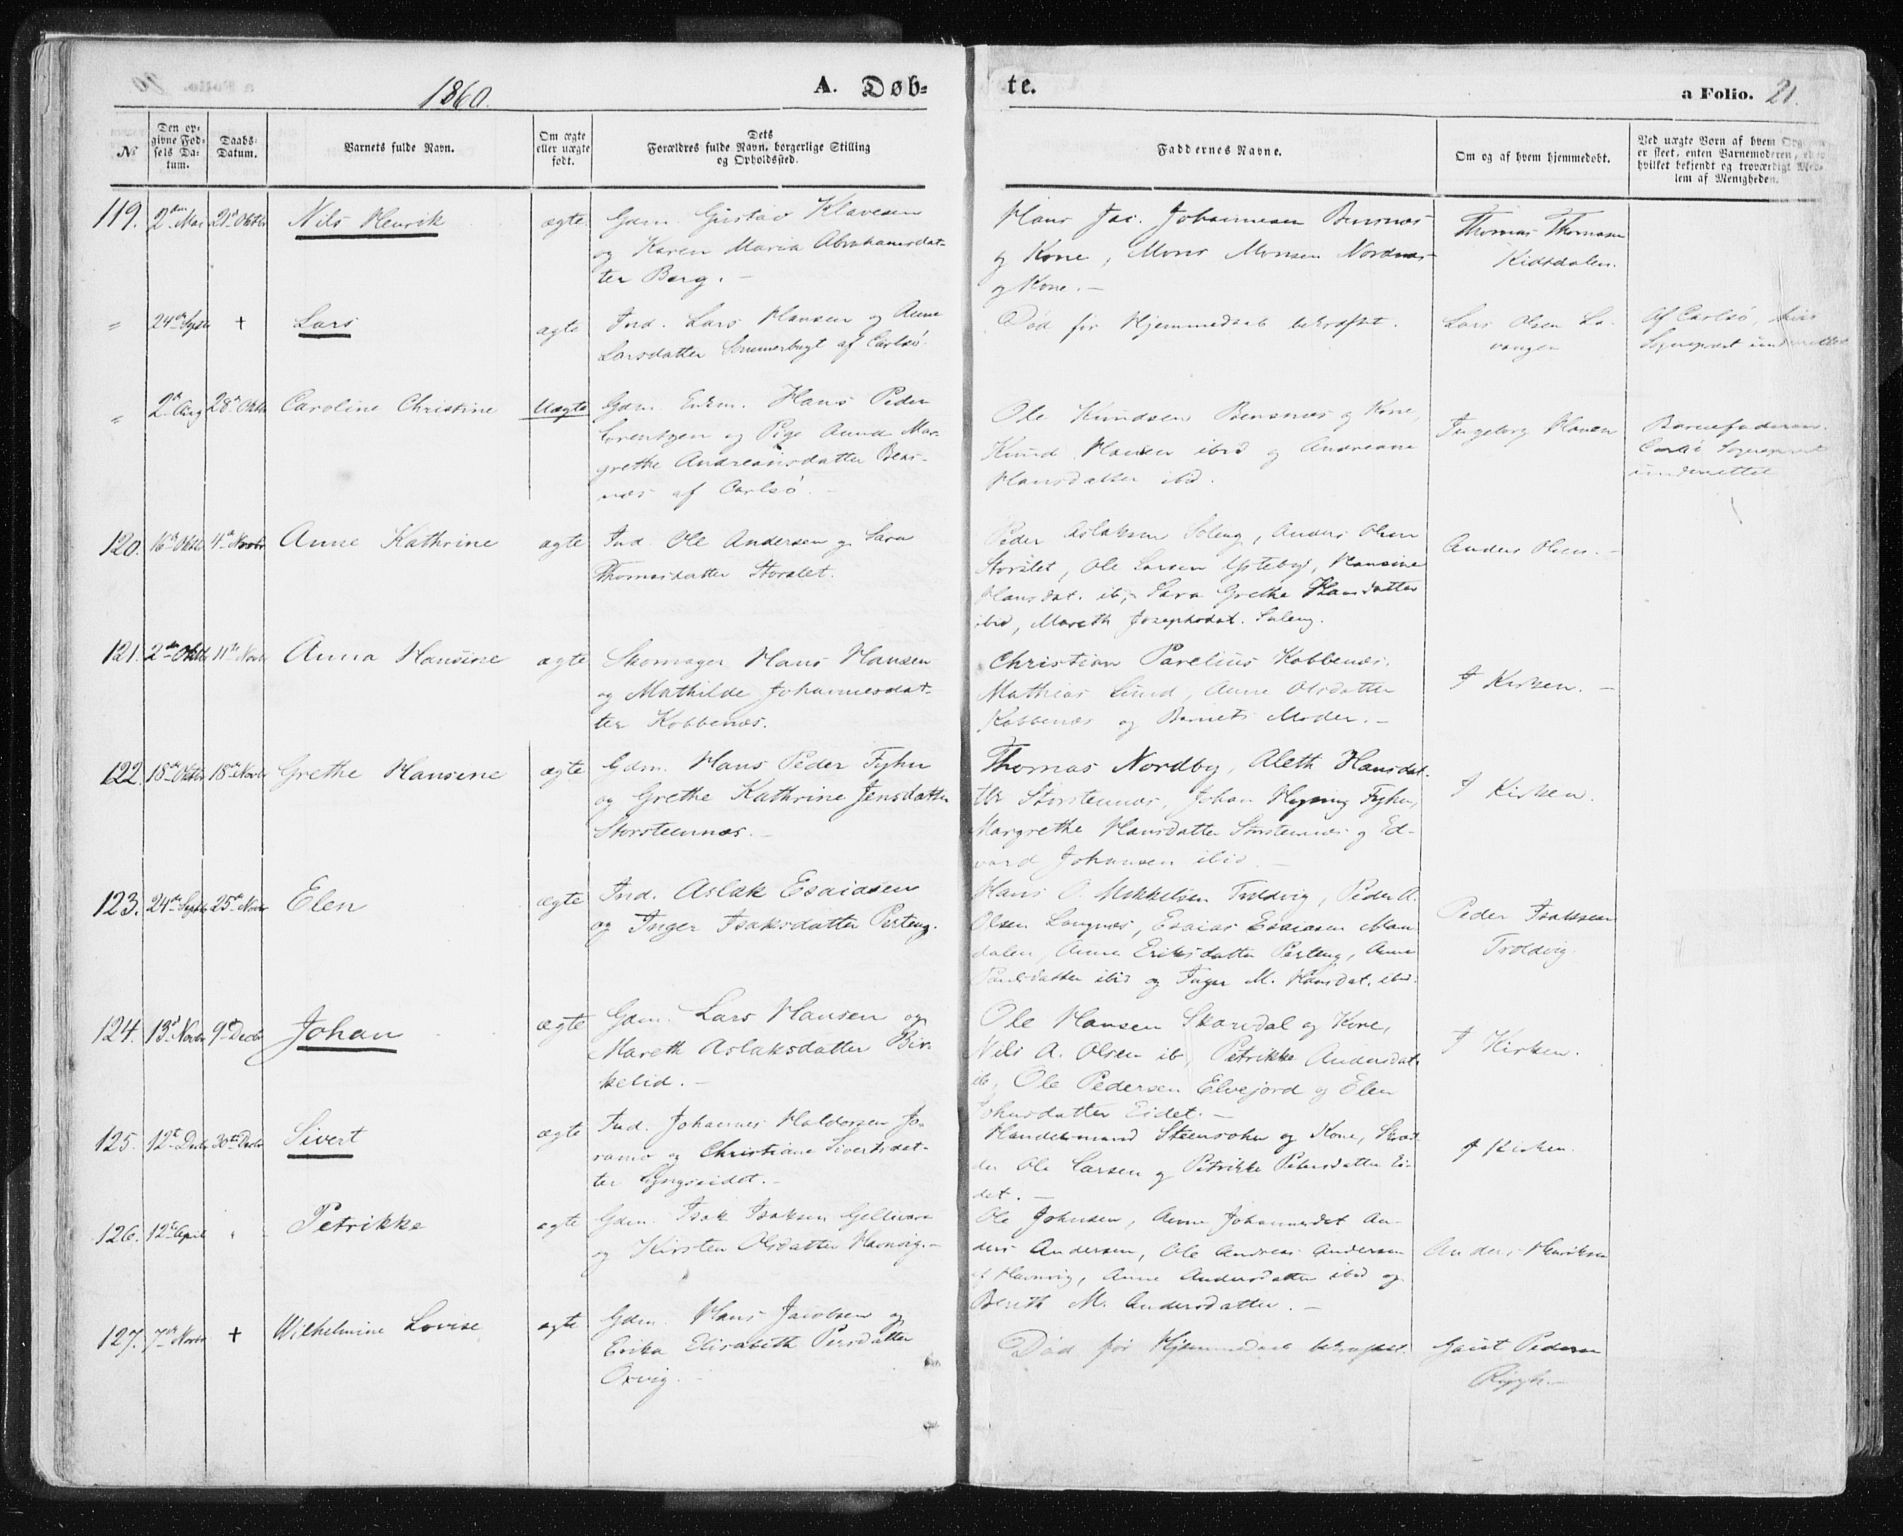 1860.
A. Døb-
te.
a Folio. 21.
№
Den op-
givne Fød-
sels Da-
tum.
Daabs-
Datum.
Barnets fulde Navn.
Om ægte
eller uægte
født.
Dets
Forældres fulde Navn, borgerlige Stilling
og Opholdssted.
Faddernes Navne.
Om og af hvem hjemmedøbt.
Ved uægte Børn af hvem Opgaven
er skeet, enten Barnemoderen, eller
hvilket bekjendt og troværdigt Med-
lem af Menigheden.
119. 2den Mai 21de Oktbr Nils Henrik ægte
Gdm. Gustav Klavesen
og Karen Maria Abrahamsdat-
ter Berg. -
Hans Jac. Johannesen Bensnæs
og Kone, Mons Monsen Nordnæs
og Kone. -
Thomas Thomasen
Kidsdalen.
" 24de Septbr + Lars ægte
Ind. Lars Hansen og Anne
Larsdatter Sommerbugt af Carlsø.
Død før Hjemmedaab bekræftet.
Lars Olsen La-
vangen
Af Carlsø,
Sognepræst underrettet
" 2de Aug 28de Oktbr Caroline Christine Uægte
Gdm. Enkm. Hans Peder
Lorentzen og Pige Anna Mar-
grethe Andreansdatter Bens-
næs af Carlsø. -
Ole Knudsen Bensnæs og Kone,
Knud Hansen ibid og Andreane
Hansdatter ibid.
Ingeborg Hansen
Barnefaderen.
Carlsø Sognepræst
underrettet
120. 16de Oktbr 4de Novbr Anne Kathrine ægte
Ind. Ole Andersen og Sara
Thomasdatter Storslet.
Peder Aslaksen Soleng, Anders Olsen
Storslet, Ole Larsen Ysteby, Hansine
Hansdat. ib, Sara Grethe Hansdatter
ibid, Mareth Josephsdat. Soleng.
Anders Olsen. -
121. 2den Oktbr 11te Novbr Anna Hansine ægte
Skomager Hans Hansen
og Mathilde Johannesdat-
ter Kobbenæs.
Christian Parelius Kobbenæs,
Mathias Lund, Anne Olsdatter
Kobbenæs og Barnets Moder. -
I Kirken. -
122. 18de Oktbr 18de Novbr Grethe Hansine ægte
Gdm. Hans Peder Fyhn
og Grethe Kathrine Jensdatter
Storsteennæs. -
Thomas Nordby, Aleth Hansdat-
ter Storsteennæs, Johan Fyhn,
Margrethe Hansdatter Storsteennæs og Ed-
vard Johansen ibid. -
I Kirken.
123. 24de Septbr 25de Novbr Elen ægte
Ind. Aslak Esaiasen
og Inger Isaksdatter Perteng.
Hans O. Mikkelsen Troldvig, Peder A.
Olsen Langnæs, Esaias Esaiasen Man-
dalen, Anne Eriksdatter Perteng, Anne
Poulsdatter ibid og Inger M. Hansdat. ibid.
Peder Isaksen
Troldvig.
124. 13de Novbr 9de Decbr Johan ægte
Gdm. Lars Hansen og
Mareth Aslaksdatter Bir-
kelid. -
Ole Hansen Skardal og Kone,
Nils A. Olsen ib, Petrikke Andersdat.
ib, Ole Pedersen Elvejord og Elen
Johnsdatter Eidet. -
I Kirken.
125. 12te Decbr 30te Decbr Sivert ægte
Ind. Johannes Haldorsen Jo-
ramo og Christiane Sivertsdat-
ter Lyngseidet. -
Handelsmand Steensohn og Kone,
Ole Larsen og Petrikke Petersdatter Ei-
det. -
I Kirken.
126. 12te April " Petrikke ægte
Gdm. Isak Isaksen Gellivara
og Kirsten Olsdatter Havnvig. -
Ole Johnsen, Anne Johannesdat An-
ders Andersen, Ole Andreas Andersen
Havnvig, Anne Andersdatter ibid og
Berith M. Andersdatter. -
Anders Henriksen
127. 7de Novbr + Wilhelmine Lovise ægte
Gdm. Hans Jacobsen og
Erika Elisabeth Persdatter
Oxvig. -
Død før Hjemmedaab bekræftet.
Pedersen